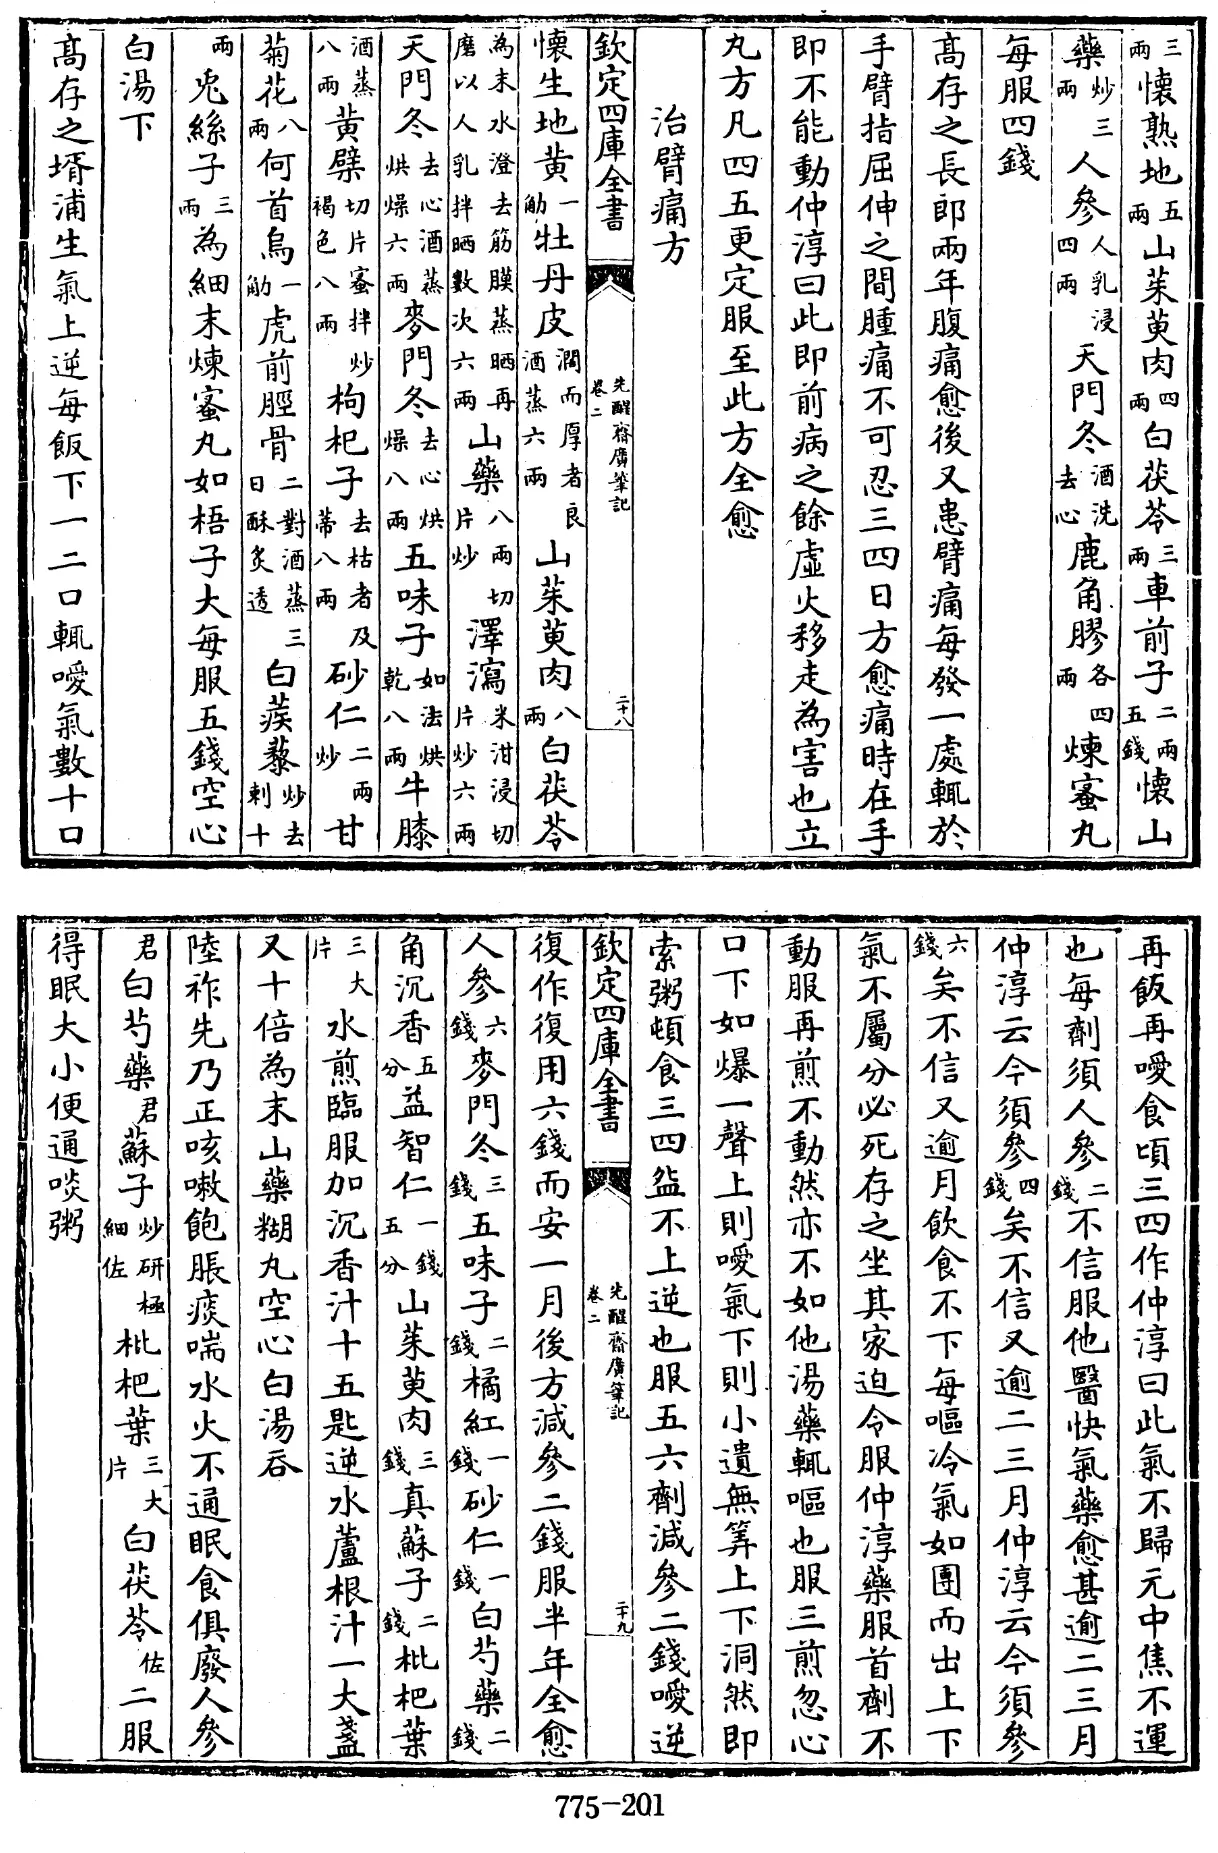 三兩懷熟地五兩山茱萸肉四兩白茯苓三兩車前子二兩五錢懷山
藥炒三兩人參人乳浸四兩天門冬酒洗去心鹿角膠各四兩煉蜜丸
每服四錢
高存之長郎兩年腹痛愈後又患臂痛每發一處輒於
手臂指屈伸之間腫痛不可忍三四日方愈痛時在手
即不能動仲淳曰此即前病之餘虛火移走為害也立
丸方凡四五更定服至此方全愈
治臂痛方
欽定四庫全書
先醒齋廣筆記
卷二
二十八
懷生地黃一觔牡丹皮濶而厚者良酒蒸六兩山茱萸肉八兩白茯苓
為末水澄去筋膜蒸晒再磨以人乳拌晒數次六兩山藥八兩切片炒澤瀉米泔浸切片炒六兩
天門冬去心酒蒸烘燥六兩麥門冬去心烘燥八兩五味子如法烘乾八兩牛膝
酒蒸八兩黃蘗切片蜜拌炒褐色八兩枸杞子去枯者及蒂八兩砂仁二兩炒甘
菊花八兩何首烏一觔虎前脛骨二對酒蒸三日酥炙透白蒺藜炒去刺十
兩兎絲子三兩為細末煉蜜丸如梧子大每服五錢空心
白湯下
高存之壻浦生氣上逆每飯下一二口輒噯氣數十口
再飯再噯食頃三四作仲淳曰此氣不歸元中焦不運
也每劑須人參二錢不信服他醫快氣藥愈甚逾二三月
仲淳云今須參四錢矣不信又逾二三月仲淳云今須參
六錢矣不信又逾月飲食不下每嘔冷氣如團而出上下
氣不屬分必死存之坐其家迫令服仲淳藥服首劑不
動服再煎不動然亦不如他湯藥輒嘔也服三煎忽心
口下如爆一聲上則噯氣下則小遺無筭上下洞然即
索粥頓食三四盌不上逆也服五六劑減參二錢噯逆
欽定四庫全書
先醒齋廣筆記
卷二
二十九
復作復用六錢而安一月後方減參二錢服半年全愈
人參六錢麥門冬三錢五味子二錢橘紅一錢砂仁一錢白芍藥二錢
角沉香五分益智仁一錢五分山茱萸肉三錢真蘇子二錢枇杷葉
三大片水煎臨服加沉香汁十五匙逆水蘆根汁一大盞
又十倍為末山藥糊丸空心白湯吞
陸祚先乃正咳嗽飽脹痰喘水火不通眠食俱廢人參
君白芍藥君蘇子炒研極細佐枇杷葉三大片白茯苓佐二服
得眠大小便通啖粥
775-201